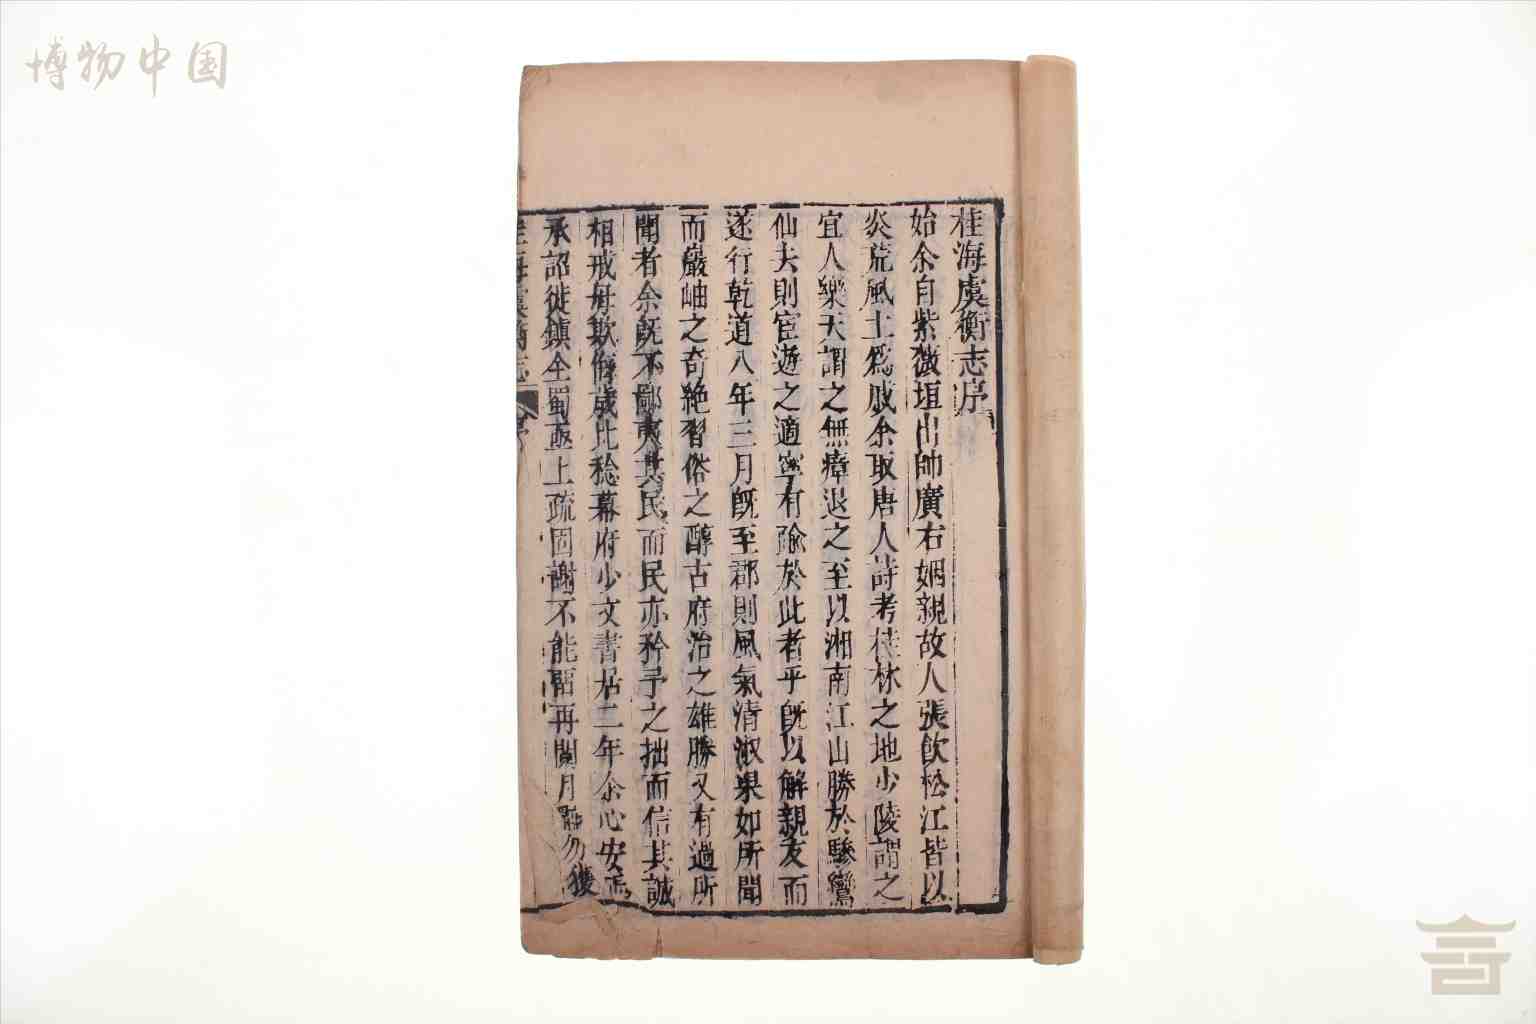 博物中国
桂海虞衡志序
始余自紫薇垣出帥廣右姻親故人張飲松江皆以
炎荒風土為戚余取唐人詩考桂林之地少陵謂之
宜人樂天謂之無瘴退之至以湘南江山勝於驂鸞
仙去則宦遊之適寧有踰於此者乎既以解親友而
遂行乾道八年三月既至郡則風氣清淑果如所聞
而巖岫之奇絶習俗之醇古府治之雄勝又有過所
聞者余既不鄙夷其民而民亦矜予之拙而信其誠
相戒毋欺侮歲比稔幕府少文書居二年余心安焉
承詔徙鎮全蜀亟上疏固謝不能留再閲月辭勿獲
桂海虞衡志 序